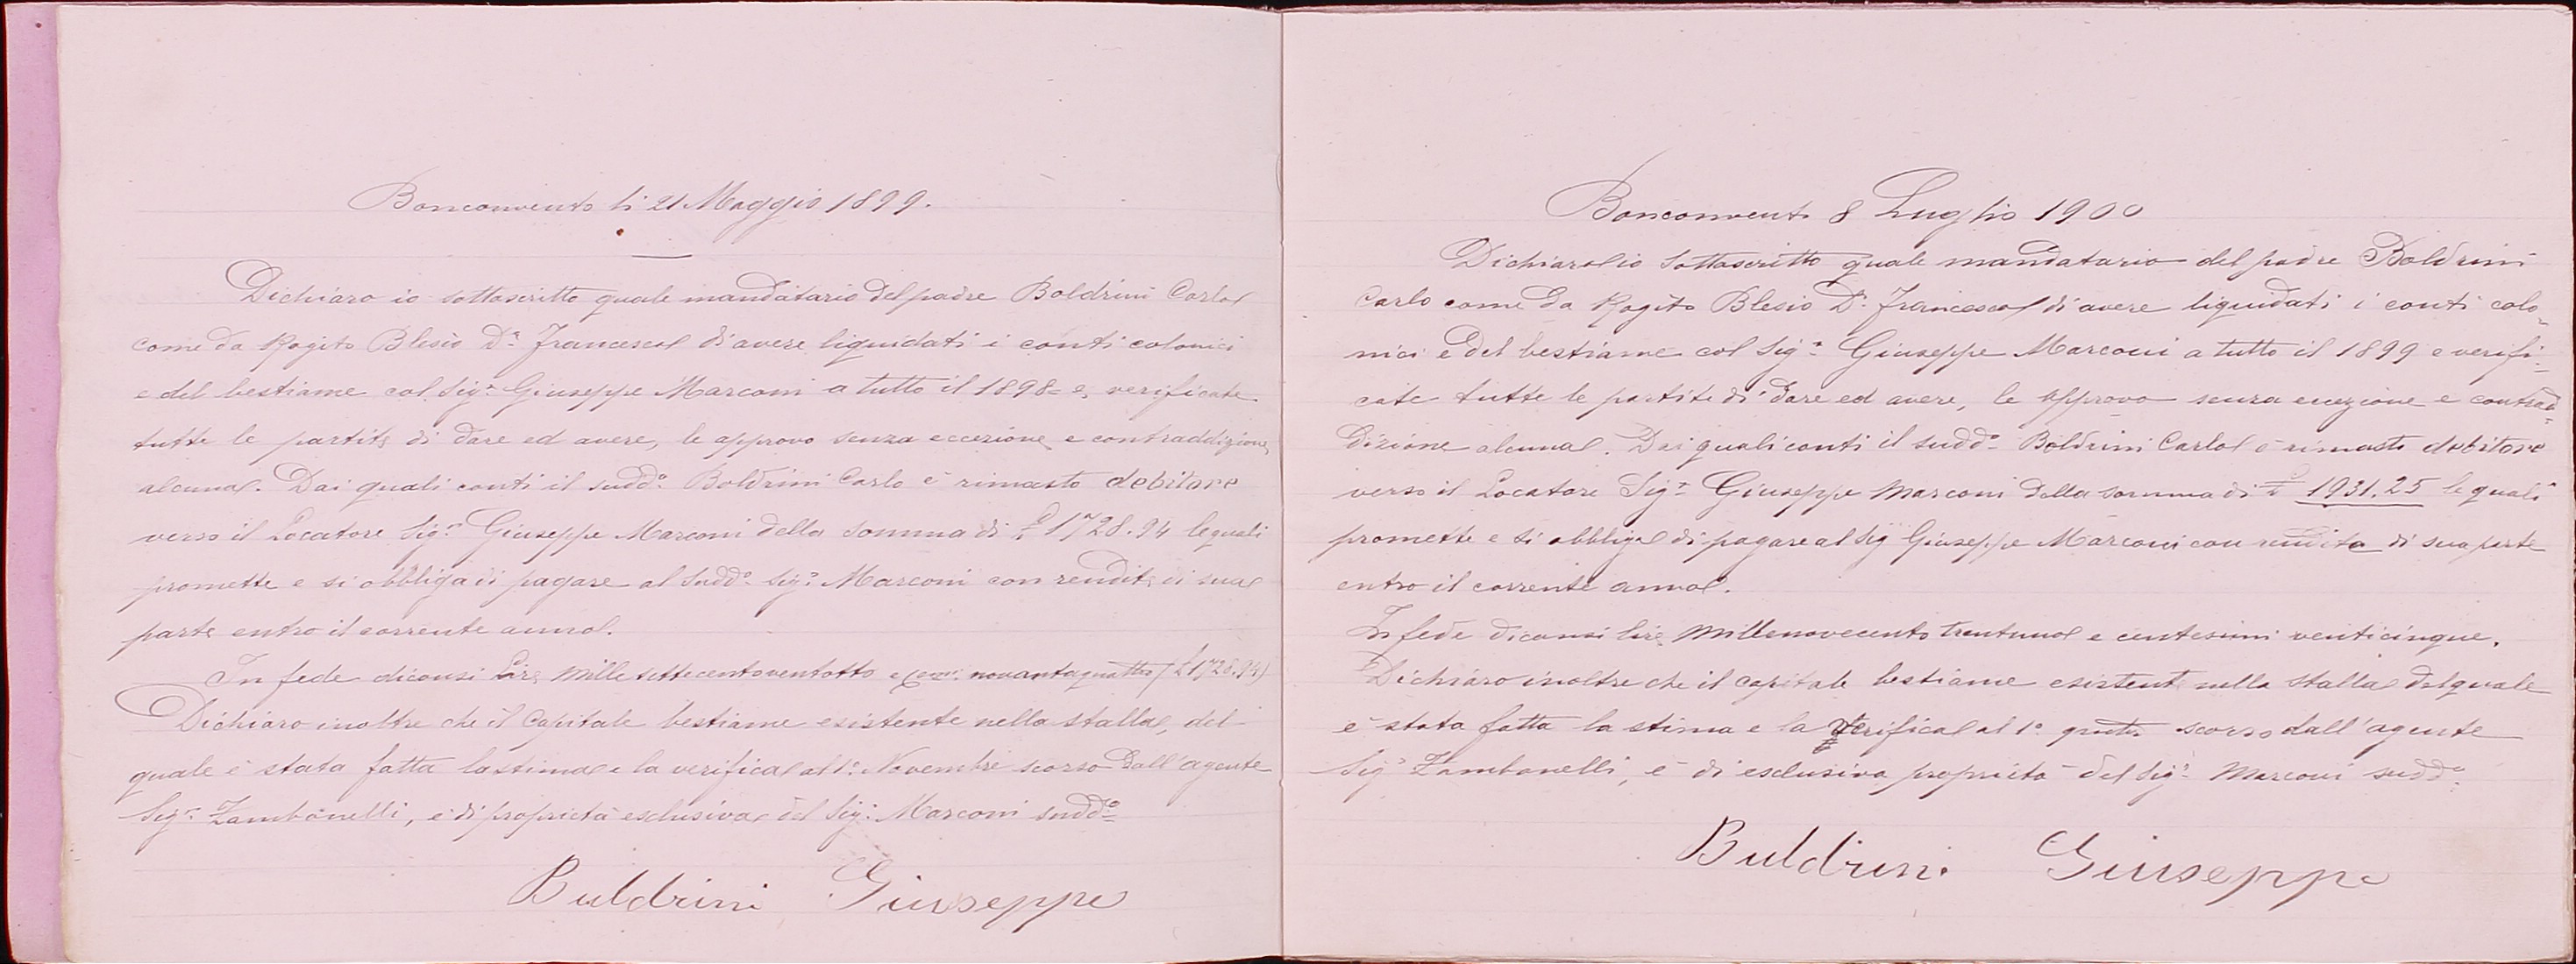 Bonconvento li 21 Maggio 1899.
Dichiaro io sottoscritto quale mandatario del padre Boldrini Carlo
come da Rogito Blesio Dr. Francesco di avere liquidati i conti colonici
e del bestiame col Sigr. Giuseppe Marconi a tutto il 1898 = e, verificate
tutte le partite di dare ed avere, le approvo senza eccezione e contraddizione
alcuna. Dai quali conti il sudd.o Boldrini Carlo è rimasto debitore
verso il Locatore Sigr. Giuseppe Marconi della somma di £ 1728.94 le quali
promette e si obbliga di pagare al sudd.o Sigr. Marconi con rendita di sua
parte entro il corrente anno.
In fede diconsi Lire Mille settecentoventotto e Cemi. novantaquattro (£ 1728.94)
Dichiaro inoltre che il Capitale bestiame esistente nella stalla, del
quale è stata fatta la stima e la verifica al 1.o Novembre scorso dall'agente
Sigr. Zambonelli, è di proprietà esclusiva del Sigr. Marconi sudd.o
Buldrini Giuseppe
Bonconvento 8 Luglio 1900
Dichiaro io sottoscritto quale mandatario del padre Boldrini
Carlo come da Rogito Blesio Dr. Francesco di avere liquidati i conti colo-
nici e del bestiame col Sigr. Giuseppe Marconi a tutto il 1899 e verifi-
cate tutte le partite di dare ed avere, le approvo senza ecezione e contrad-
dizione alcuna. Dai quali conti il sudd.o Boldrini Carlo è rimasto debitore
verso il Locatore Sigr. Giuseppe Marconi della somma di £ 1931.25 le quali
promette e si obbliga di pagare al Sig Giuseppe Marconi con rendita di sua parte
entro il corrente anno.
In fede diconsi lire Millenovecento trentuno e centesimi venticinque.
Dichiaro inoltre che il capitale bestiame esistente nella stalla del quale
è stata fatta la stima e la verifica al 1.o scorso dall'agente
Sigr. Zambonelli, è di esclusiva proprietà del Sigr. Marconi sudd.o
Buldrini Giuseppe